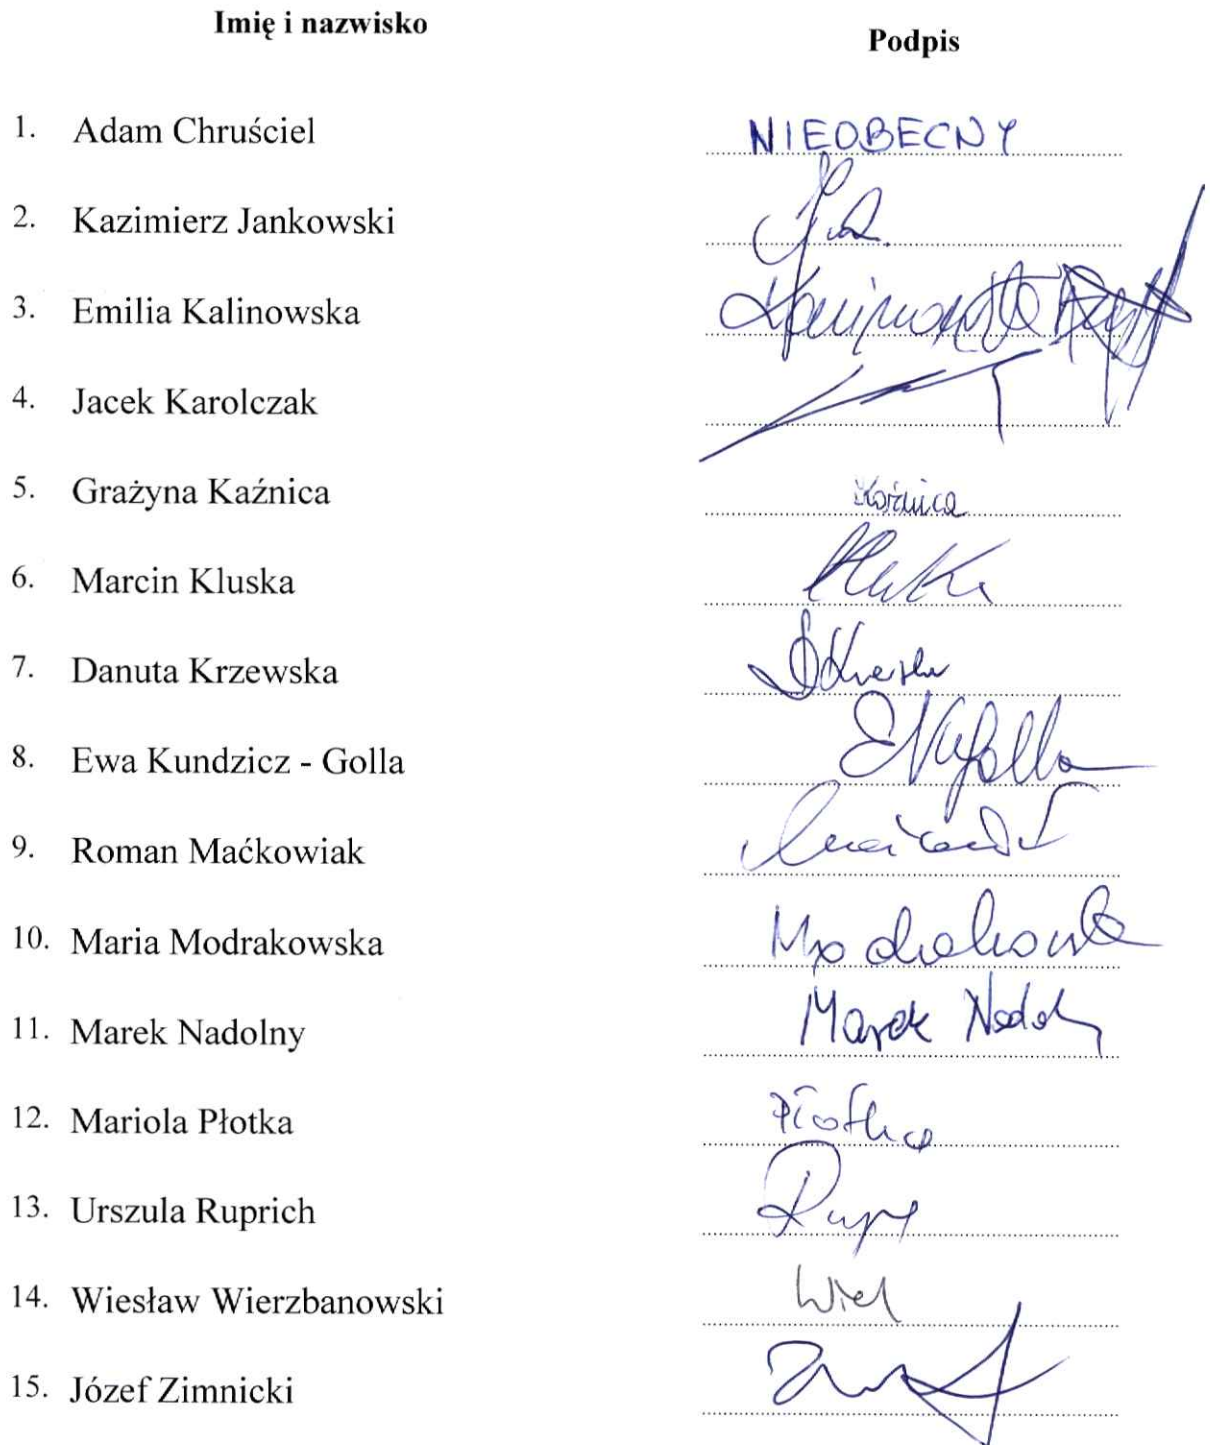 Imię i nazwisko
Podpis
1. Adam Chruściel NIEOBECNY
2. Kazimierz Jankowski
3. Emilia Kalinowska
4. Jacek Karolczak
5. Grażyna Kaźnica Kaźnica
6. Marcin Kluska
7. Danuta Krzewska
8. Ewa Kundzicz - Golla
9. Roman Maćkowiak
10. Maria Modrakowska Modrakowska
11. Marek Nadolny Marek Nadolny
12. Mariola Płotka Płotka
13. Urszula Ruprich
14. Wiesław Wierzbanowski
15. Józef Zimnicki